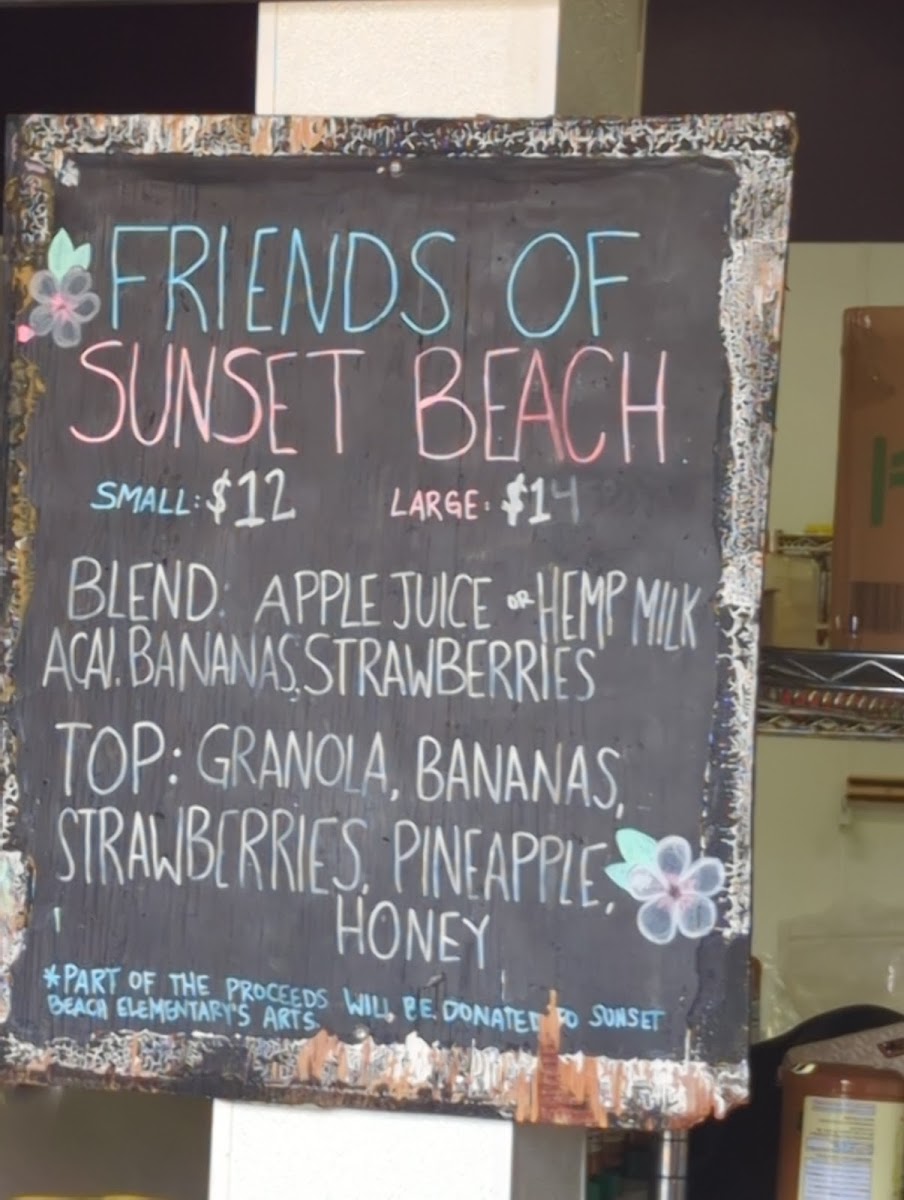 FRIENDS OF
SUNSET BEACH
SMALL: $12 LARGE: $14
BLEND: APPLE JUICE OR HEMP MILK
ACAI, BANANAS, STRAWBERRIES
TOP: GRANOLA, BANANAS,
STRAWBERRIES, PINEAPPLE,
HONEY
*PART OF THE PROCEEDS WILL BE DONATED TO SUNSET
BEACH ELEMENTARY'S ARTS.